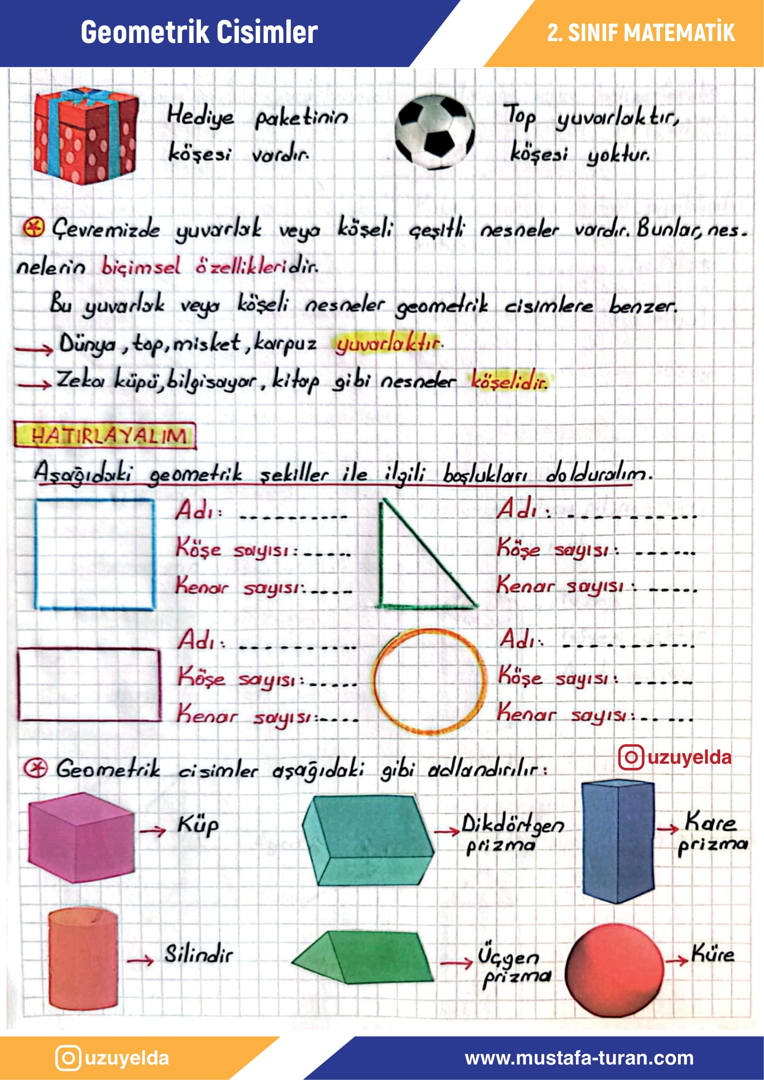 Geometrik Cisimler
2. SINIF MATEMATİK
Hediye paketinin
köşesi vardır.
Top yuvarlaktır,
köşesi yoktur.
Çevremizde yuvarlak veya köşeli çeşitli nesneler vardır. Bunlar, nes-
nelerin biçimsel özellikleridir.
Bu yuvarlak veya köşeli nesneler geometrik cisimlere benzer.
→ Dünya, top, misket, karpuz yuvarlaktır.
→ Zeka küpü, bilgisayar, kitap gibi nesneler köşelidir.
HATIRLAYALIM
Aşağıdaki geometrik şekiller ile ilgili boşlukları dolduralım.
Adı: ----------
Köşe sayısı: -----
Kenar sayısı: -----
Adı: ----------
Köşe sayısı: ------
Kenar sayısı: -----
Adı: ----------
Köşe sayısı: -----
Kenar sayısı: -----
Adı: ----------
Köşe sayısı: ------
Kenar sayısı: ------
uzuyelda
Geometrik cisimler aşağıdaki gibi adlandırılır:
→ Küp
→ Dikdörtgen
prizma
→ Kare
prizma
→ Silindir
→ Üçgen
prizma
→ Küre
uzuyelda
www.mustafa-turan.com